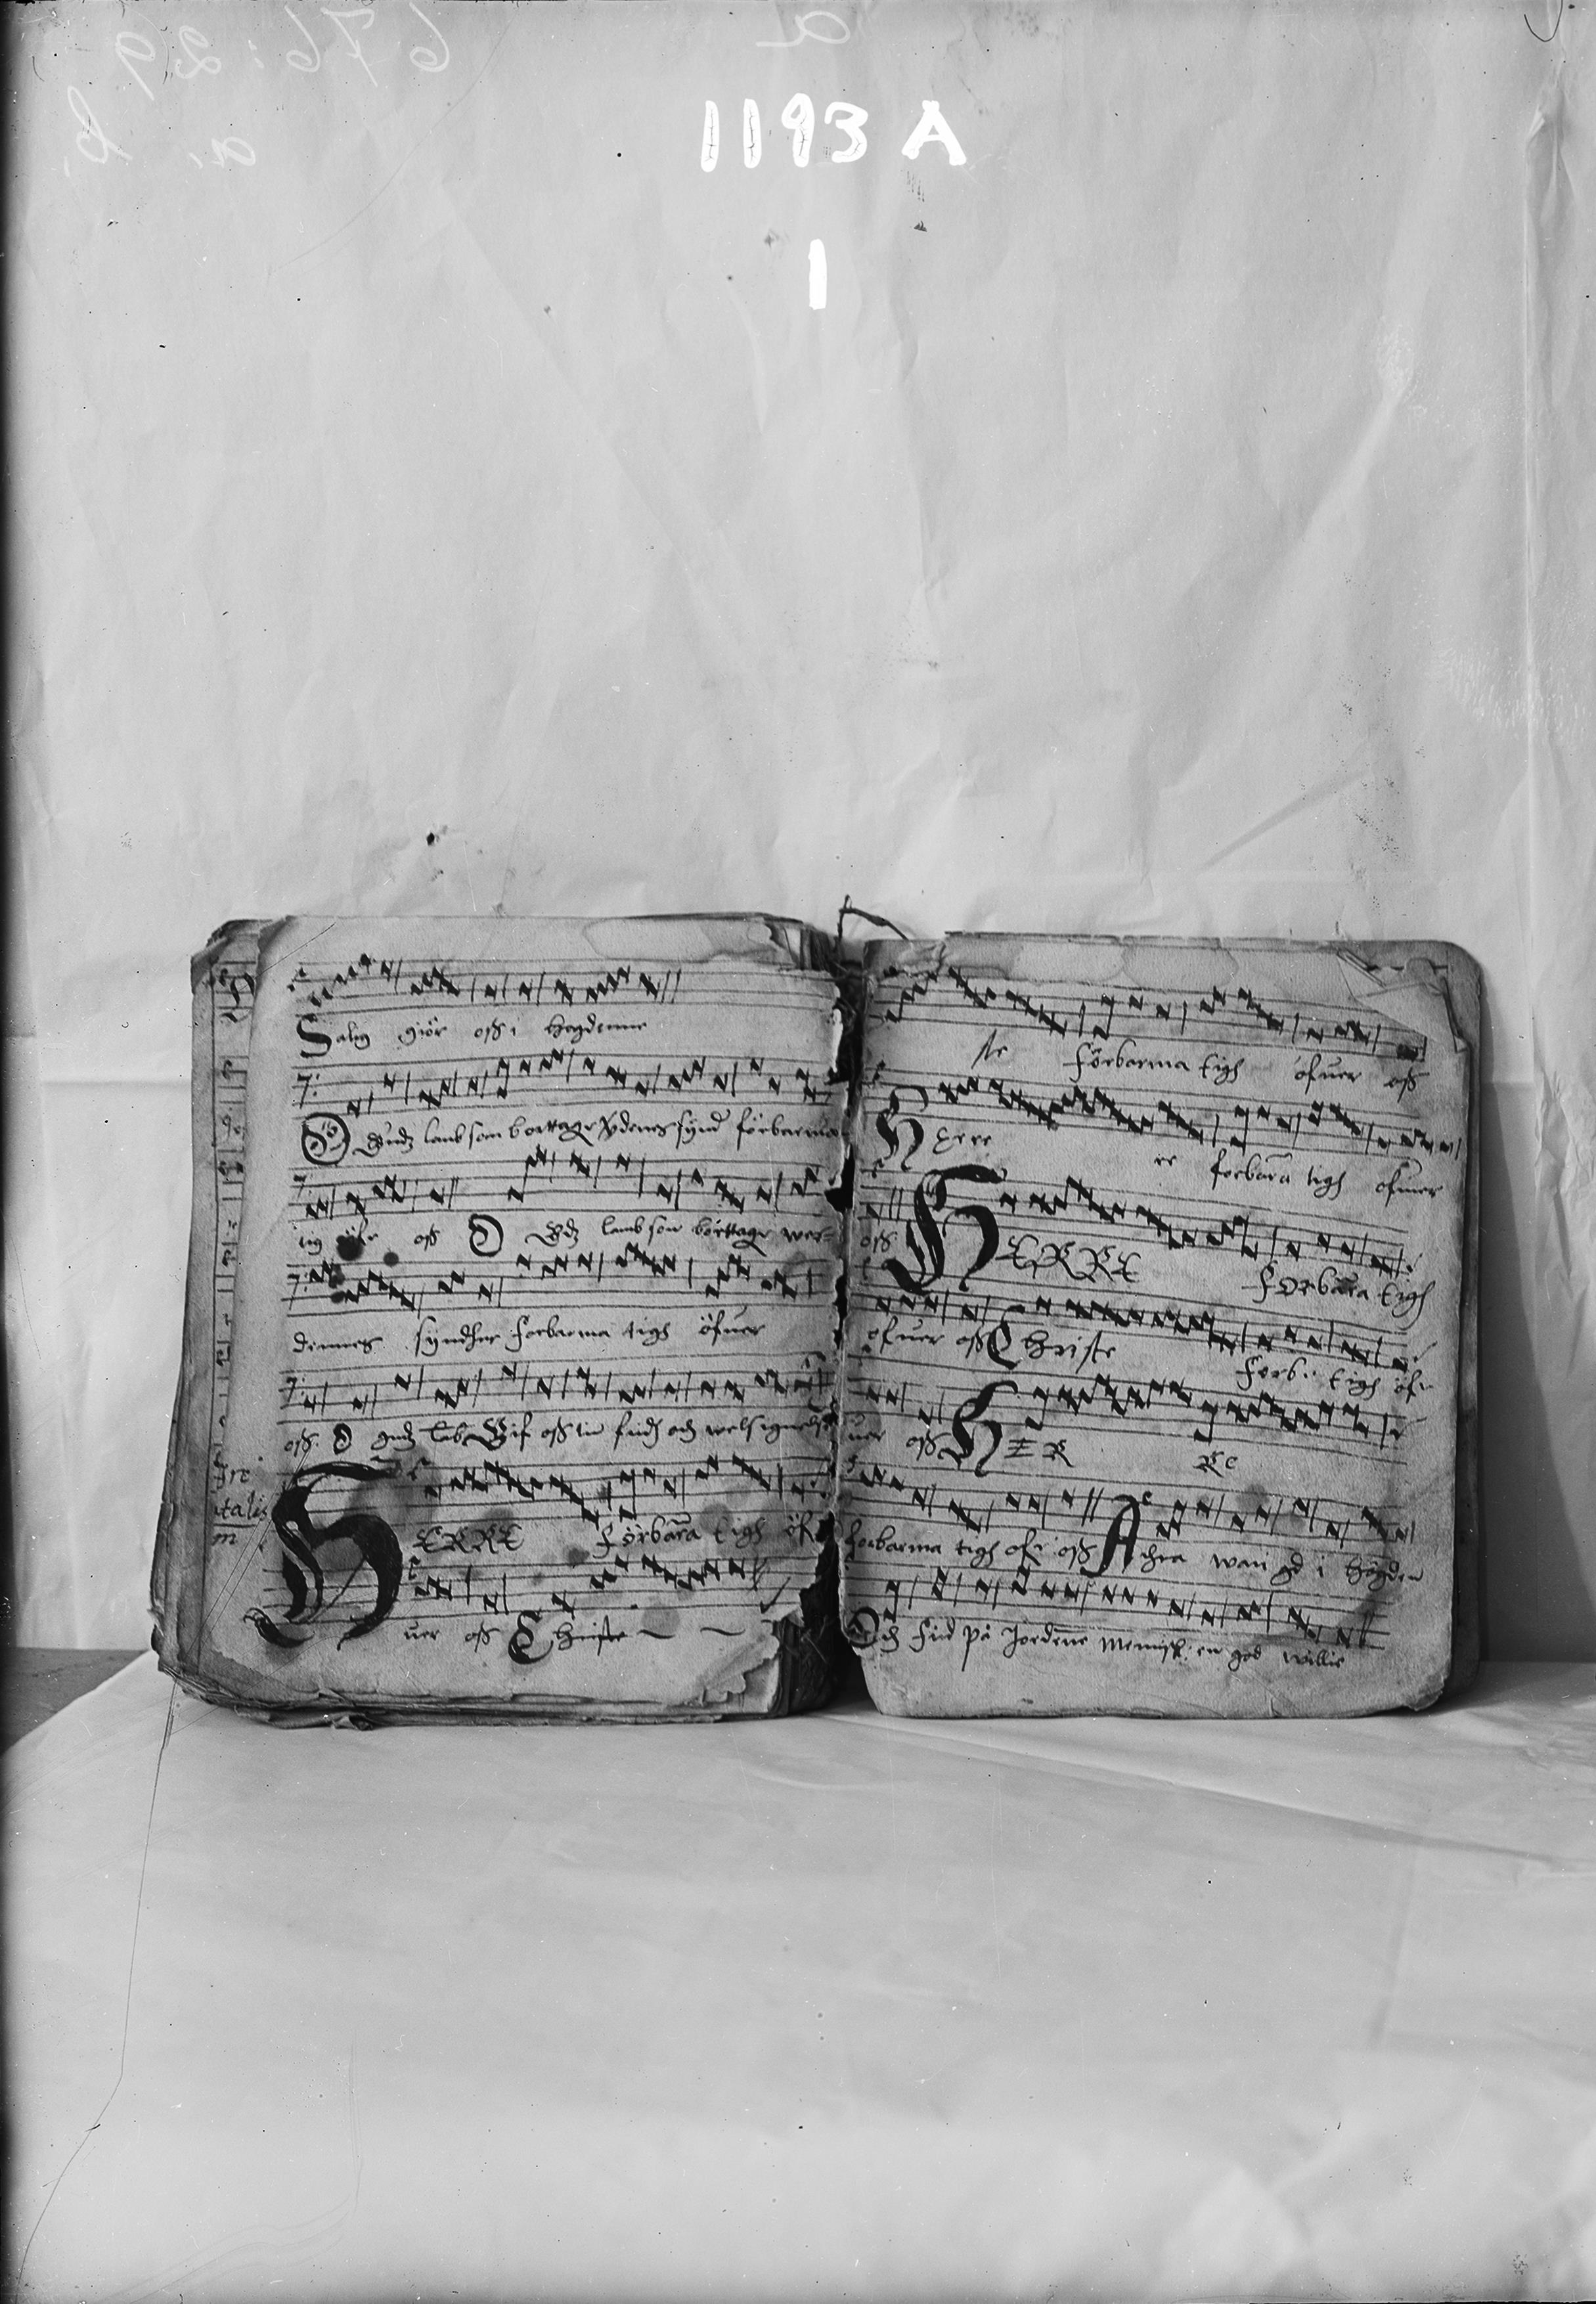 676:29
a
a. b.
1193 A
1
Salig giör oss i högdenne
O Gudz lamb som borttagr verdenes synd förbarma
tig öfr oss O Gudz lamb som borttagr wer=
dennes syndher forbarma tigh öfuer
oss. O gudz lab Gif oss tin fridh och welsignelse
HERRE Förbara tigh öf
uer oss Christe
ste Förbarma tigh öfuer oss
Herre re forbara tigh ofuer
oss HERRE Forbara tigh
öfuer oss Christe Forb: tigh öf
uer oss HER Re
forbarma tigh ofr oss Ähra wari gd i högden
Och frid på Jordenne Mennisk:en god willie